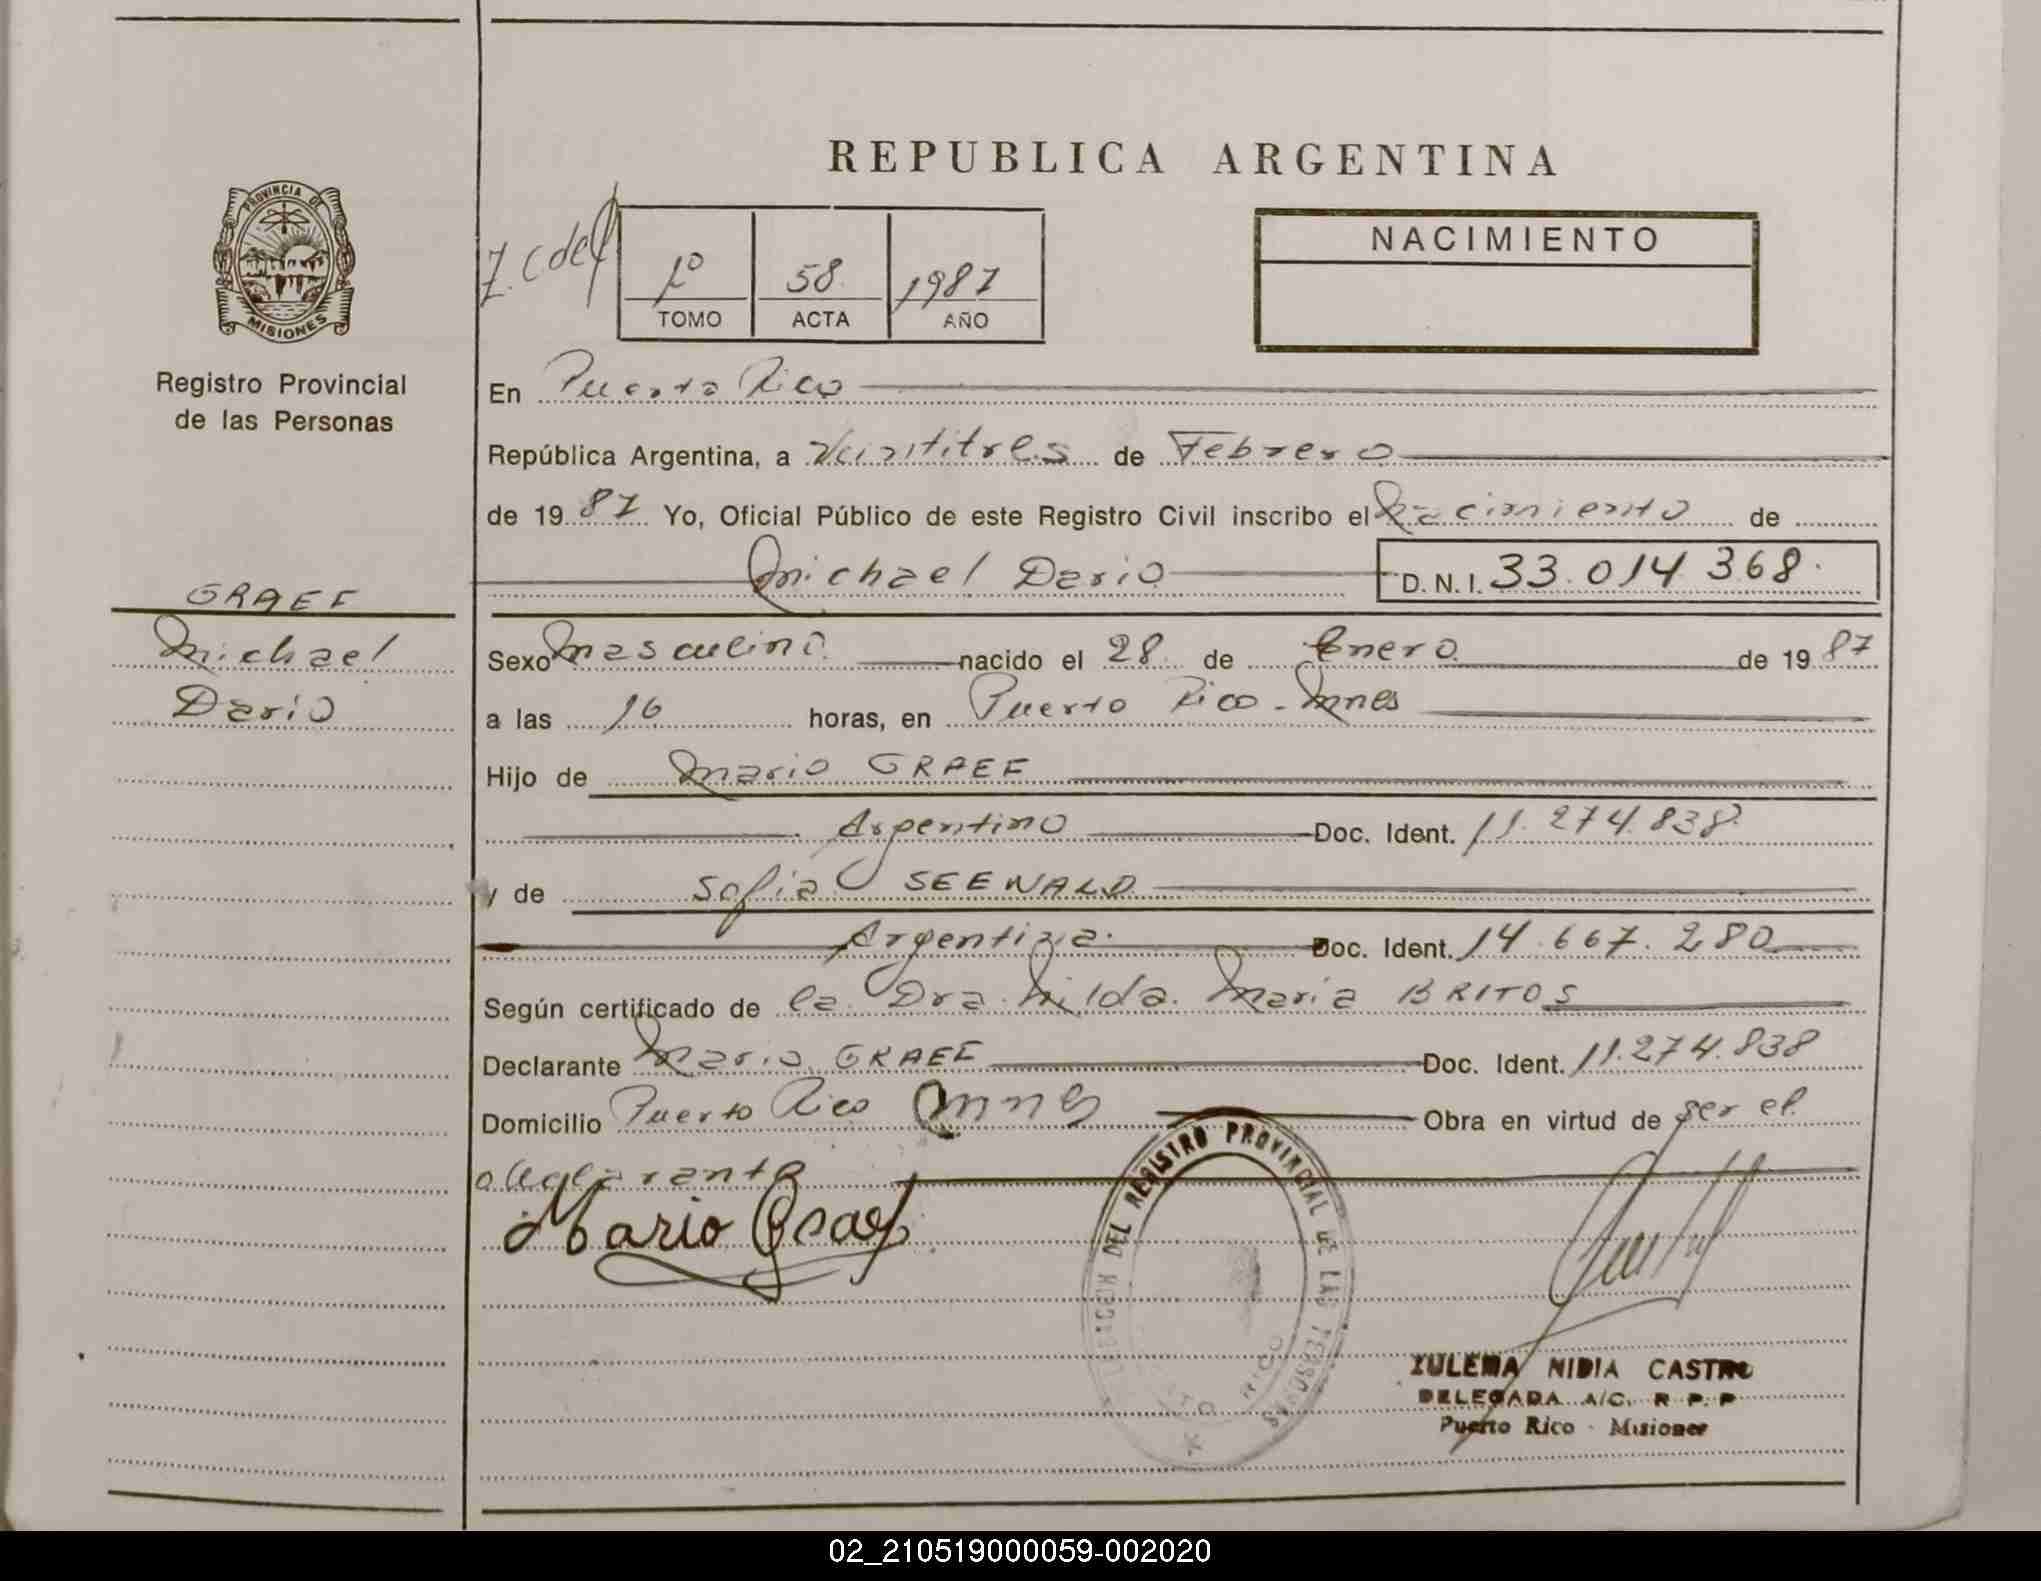 REPUBLICA ARGENTINA
PROVINCIA DE
MISIONES
Registro Provincial
de las Personas
GRAEF
Michael
Dario
1º 58 1987
TOMO ACTA AÑO
NACIMIENTO
En Puerto Rico
República Argentina, a Veintitres de Febrero
de 1987 Yo, Oficial Público de este Registro Civil inscribo el Nacimiento de
Michael Dario D.N.I. 33.014.368.
Sexo Masculino nacido el 28 de Enero de 1987
a las 16 horas, en Puerto Rico - Mnes
Hijo de Mario GRAEF
Argentino Doc. Ident. 11.274.838
y de Sofia SEEWALD
Argentina. Doc. Ident. 14.667.280
Según certificado de la Dra. Nilda Maria BRITOS
Declarante Mario GRAEF Doc. Ident. 11.274.838
Domicilio Puerto Rico Mnes Obra en virtud de ser el
declarante
Mario Graef
DEL REGISTRO PROVINCIAL DE LAS PERSONAS
RICO
ZULEMA NIDIA CASTRO
DELEGADA A/C. R. P. P
Puerto Rico - Misiones
02_210519000059-002020